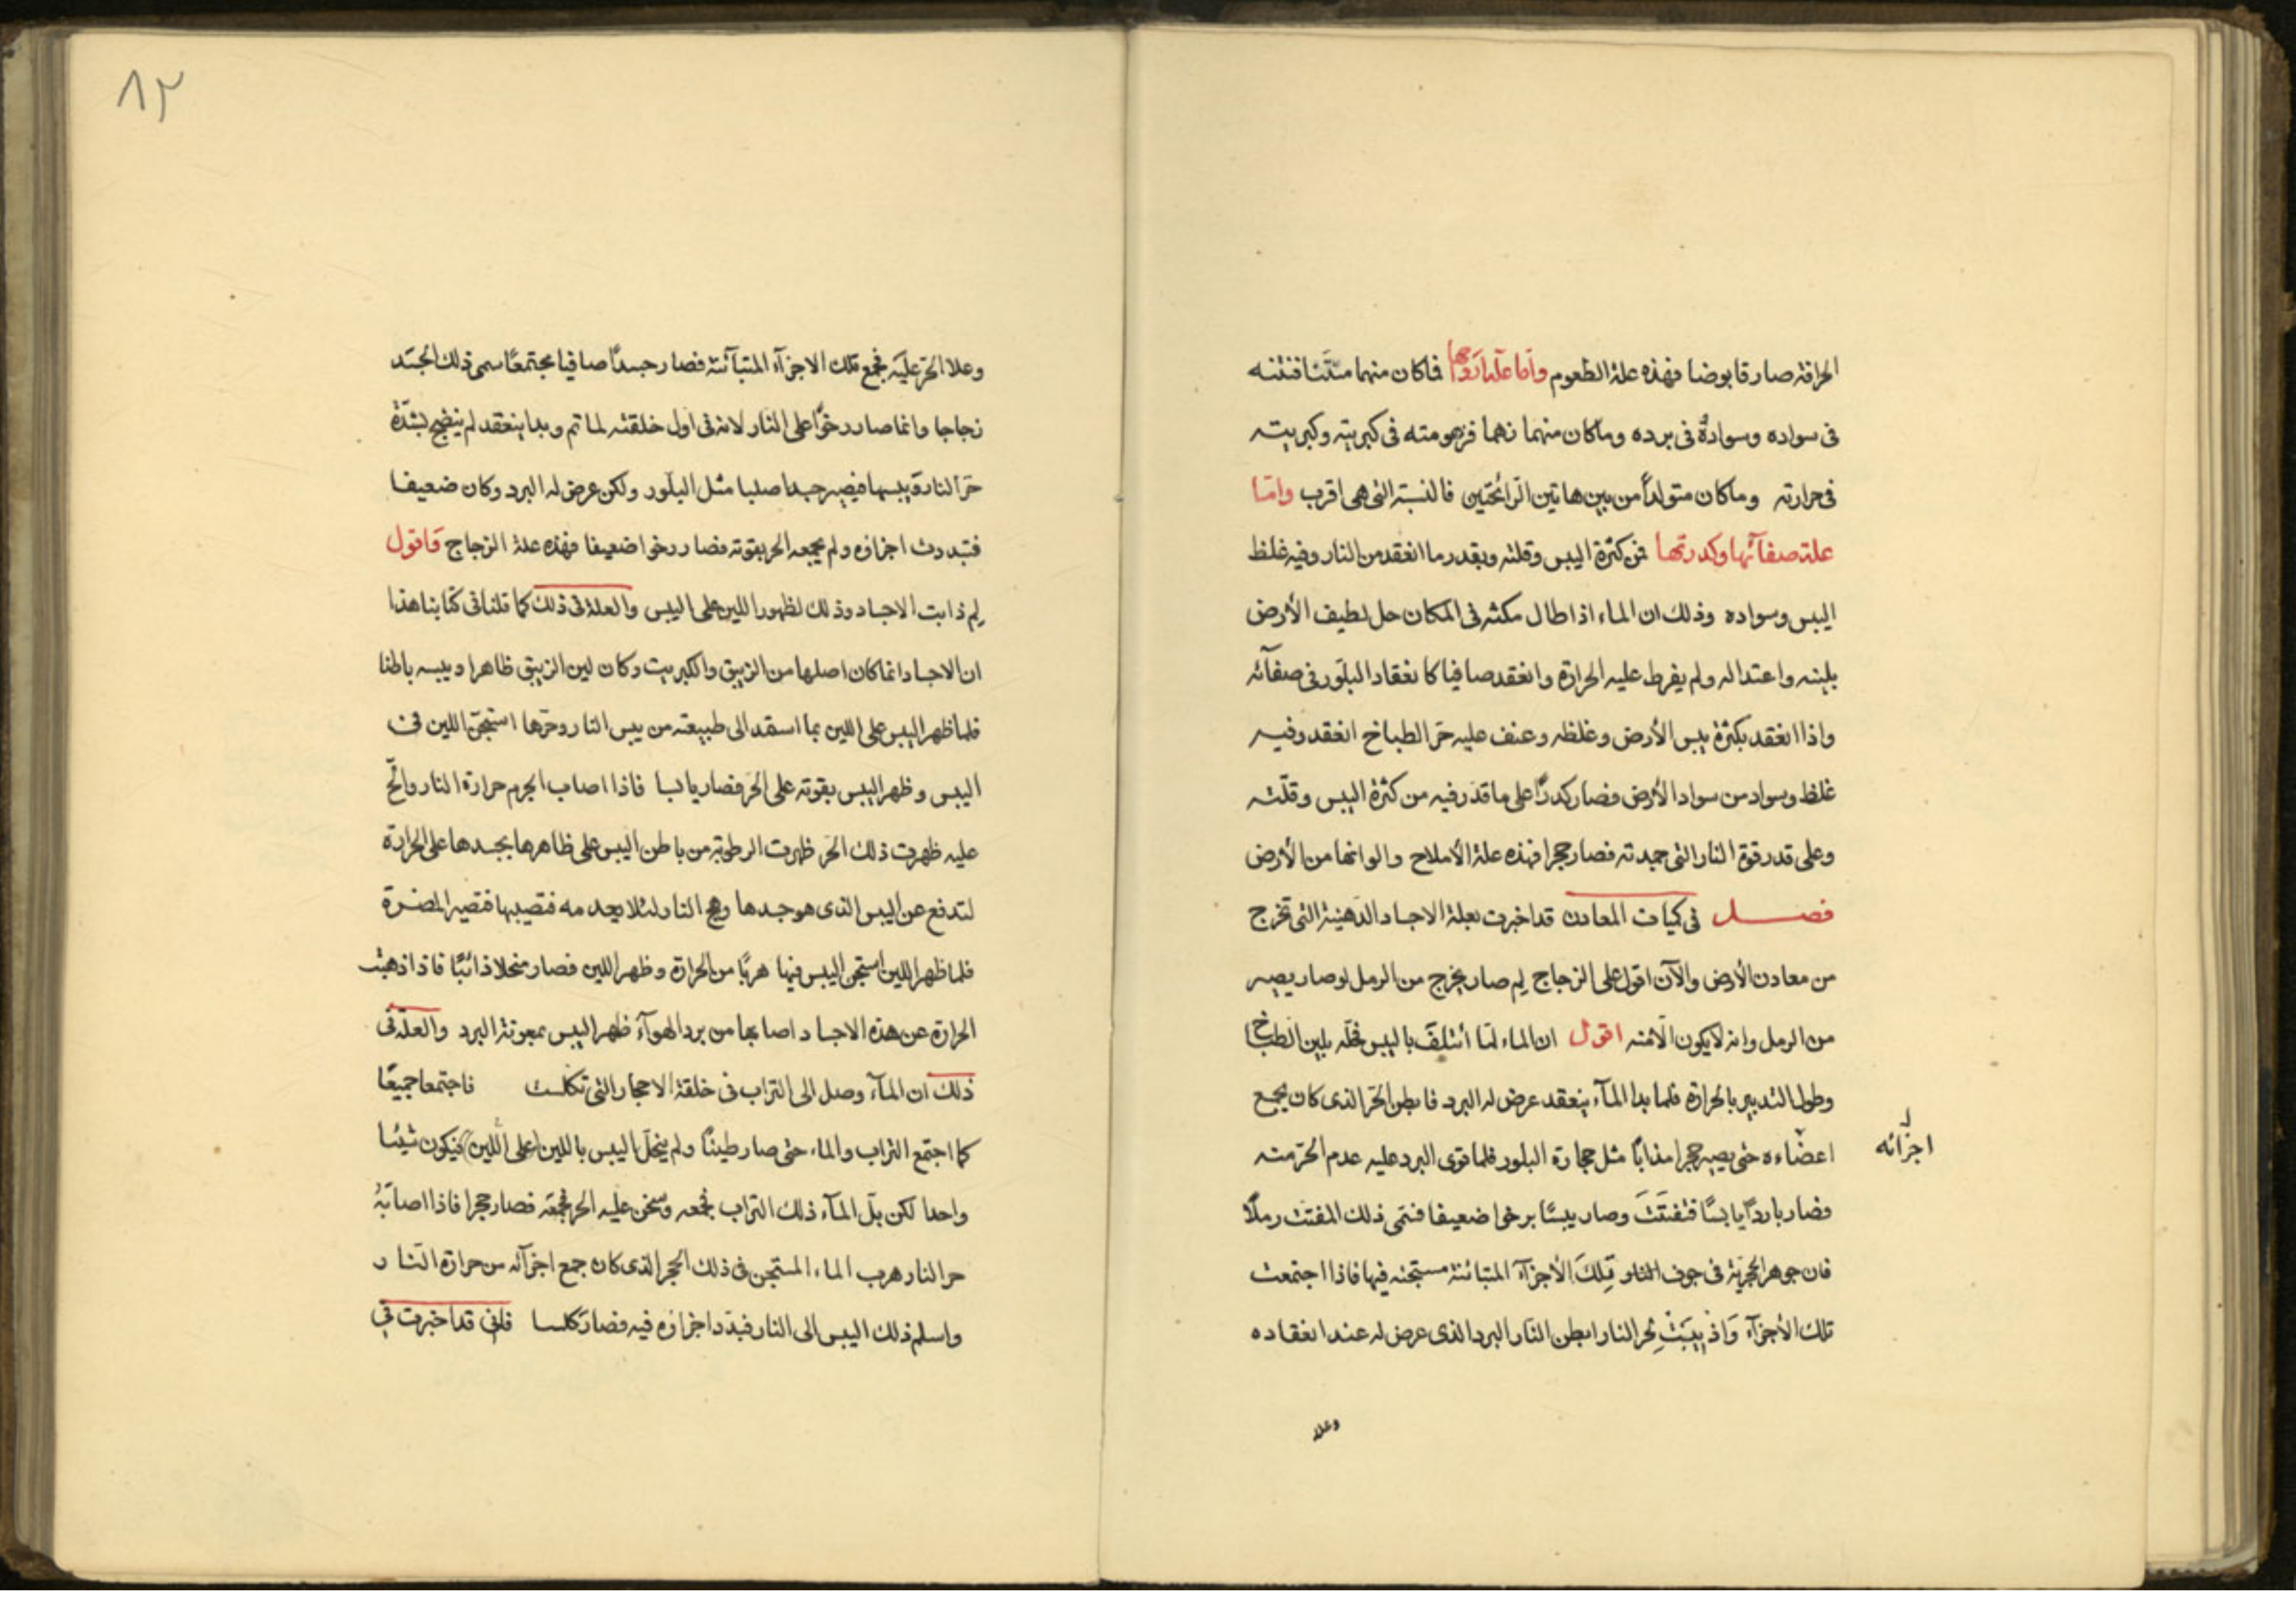 الحرافة صار قابوضا فهذه علة الطعوم واما علة ارواحها فما كان منهما منتنا فنتنه
فى سواده وسواده فى برده وما كان منهما زهما فزهومته فى كبريته وكبريته
فى حرارته وما كان متولدا من بين هاتين الرائحتين فالنسبة التى هى اقرب واما
علة صفائها وكدرتها فمن كثرة اليبس وقلته وبقدر ما انعقد من النار وفيه غلظ
اليبس وسواده وذلك ان الماء اذا طال مكثه فى المكان حل لطيف الأرض
بلينه واعتداله ولم يفرط عليه الحرارة وانعقد صافيا كانعقاد البلور فى صفآئه
واذا انعقد بكثرة يبس الأرض وغلظه وعنف عليه حر الطباخ انعقد وفيه
غلظ وسواد من سواد الأرض فصار كدرًا على ما قدر فيه من كثرة اليبس وقلته
وعلى قدر قوة النار التى جمدته فصار حجرا فهذه علة الأملاح والوانها من الأرض
فصل فى كيات المعادن قد اخبرت بعلة الاجساد الدهنية التى تخرج
من معادن الأرض والآن اقول على الزجاج لِم صار يخرج من الرمل لو صار يصير
من الرمل وانه لا يكون الا منه اقول ان الماء لما أئتلف باليبس فحله بلين الطباخ
وطول التدبير بالحرارة فلما بدا المآء ينعقد عرض له البرد فابطن الحر الذى كان يجمع
اعضاءه حتى يصير حجرا مذابًا مثل حجارة البلور فلما قوى البرد عليه عدم الحر منه
اجزآئه
فصار باردًا يابسًا فتفتت وصار يبسًا برخوا ضعيفا فسمى ذلك المفتت رملًا
فان جوهر الحجرية فى جوف تلك الأجزآء المتبائنة مستجنه فيها فاذا اجتمعت
تلك الأجزآء واذيبت بحر النار ابطن النار البرد الذى عرض له عند انعقاده
وعلا
١٢
وعلا الحر عليه فجمع تلك الاجزآء المتبآئنة فصار جسدًا صافيا مجتمعًا سمى ذلك الجسد
زجاجا وانما صار رخوًا على النار لانه فى اول خلقته لما تم وبدا ينعقد لم ينضج بشدة
حر النار ويبسها فيصير جسدا صلبا مثل البلور ولكن عرض له البرد وكان ضعيفا
فتبددت اجزاؤه ولم يجمعه الحر بقوته فصار رخوا ضعيفا فهذه علة الزجاج فاقول
لِم ذابت الاجساد وذلك لظهور اللين على اليبس والعلة فى ذلك كما قلنا فى كتابنا هذا
ان الاجساد انما كان اصلها من الزيبق والكبريت وكان لين الزيبق ظاهرا ويبسه باطنا
فلما ظهر اليبس على اللين بما استمد الى طبيعته من يبس النار وحرها استجن اللين فى
اليبس وظهر اليبس بقوته على الحر فصار يابسا فاذا اصاب الجرم حرارة النار والح
عليه ظهرت ذلك الحر ظهرت الرطوبة من باطن اليبس على ظاهرها بجسدها على الحرارة
لتدفع عن اليبس الذى هو جسدها وهج النار لئلا يعدمه فتصيبها فتصير المضرة
فلما ظهر اللين استجن اليبس فيها هربًا من الحرارة وظهر اللين فصار منحلا ذائبًا فاذا ذهبت
الحرارة عن هذه الاجساد اصابها من برد الهوآء ظهر اليبس بمعونة البرد والعلة فى
ذلك ان المآء وصل الى التراب فى خلقة الاحجار التى تكلست فاجتمعا جميعًا
كما اجتمع التراب والماء حتى صار طينًا ولم ينحل اليبس باللين (على اللين) فيكون شيئا
واحدا لكن بل المآء ذلك التراب فجمعه وسخن عليه الحر فجمعه فصار حجرا فاذا اصابه
حر النار هرب الماء المستجن فى ذلك الحجر الذى كان جمع اجزآئه من حرارة النار
واسلم ذلك اليبس الى النار فبدد اجزاؤه فيه فصار كلسا فانى قد اخبرت فى